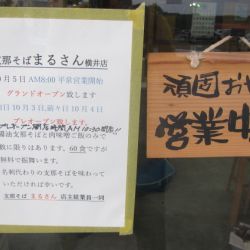 支那そばまるさん横井店
月5日AM8:00平常営業開始
グランドオープン致します
日10月3日,前々日10月4日
プレオープン致します。
醤油支那そばと肉味噌ご飯のみで
数に限りはあります。60食ですが
無料で振舞います。
名刺代わりの支那そばを味わって
いただければ幸いです。
支那そば まるさん 店主従業員一同
頑固お
営業中